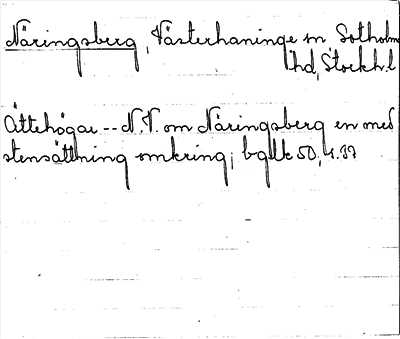 Näringsberg, Västerhaninge sn Sotholms
hd, Stockh.l
Ättehögar -- N.V. om Näringsberg en med
stensättning omkring; bglk 50, s.37